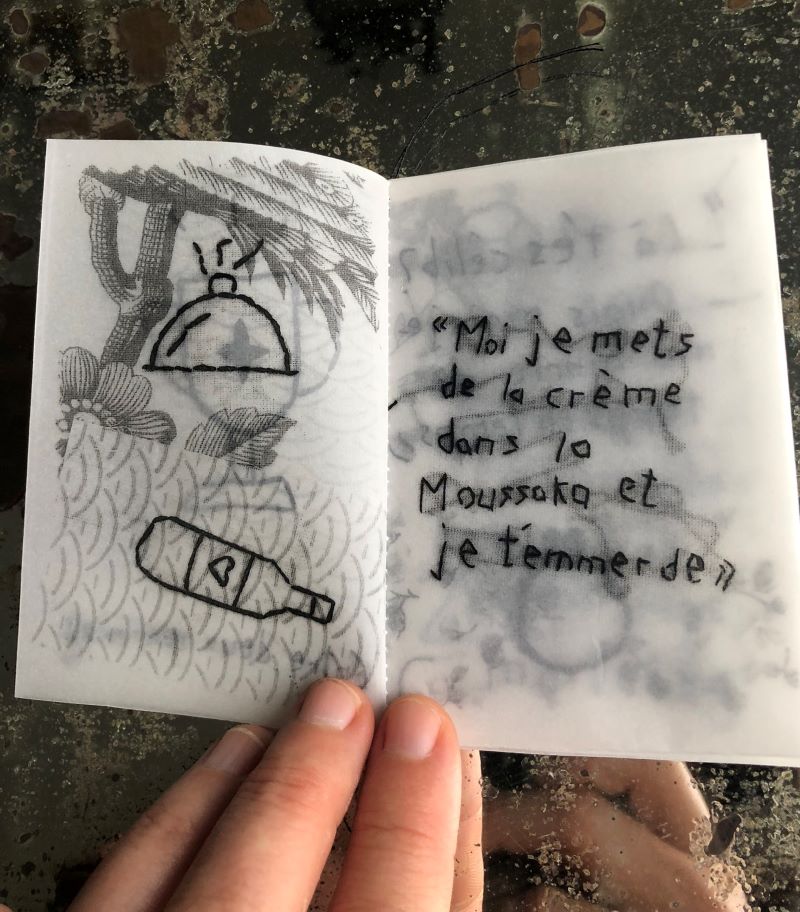 «Moi je mets
de la crème
dans la
Moussaka et
je t'emmerde»